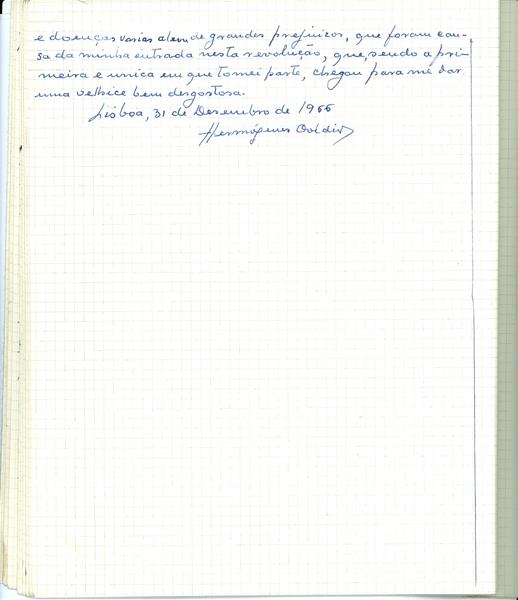 e doenças varias alem de grandes prejuizos, que foram cau-
sa da minha entrada nesta revolução, que, sendo a pri-
meira e unica em que tomei parte, chegou para me dar
uma velhice bem desgostosa.
Lisboa, 31 de Desembro de 1966
Hermógenes